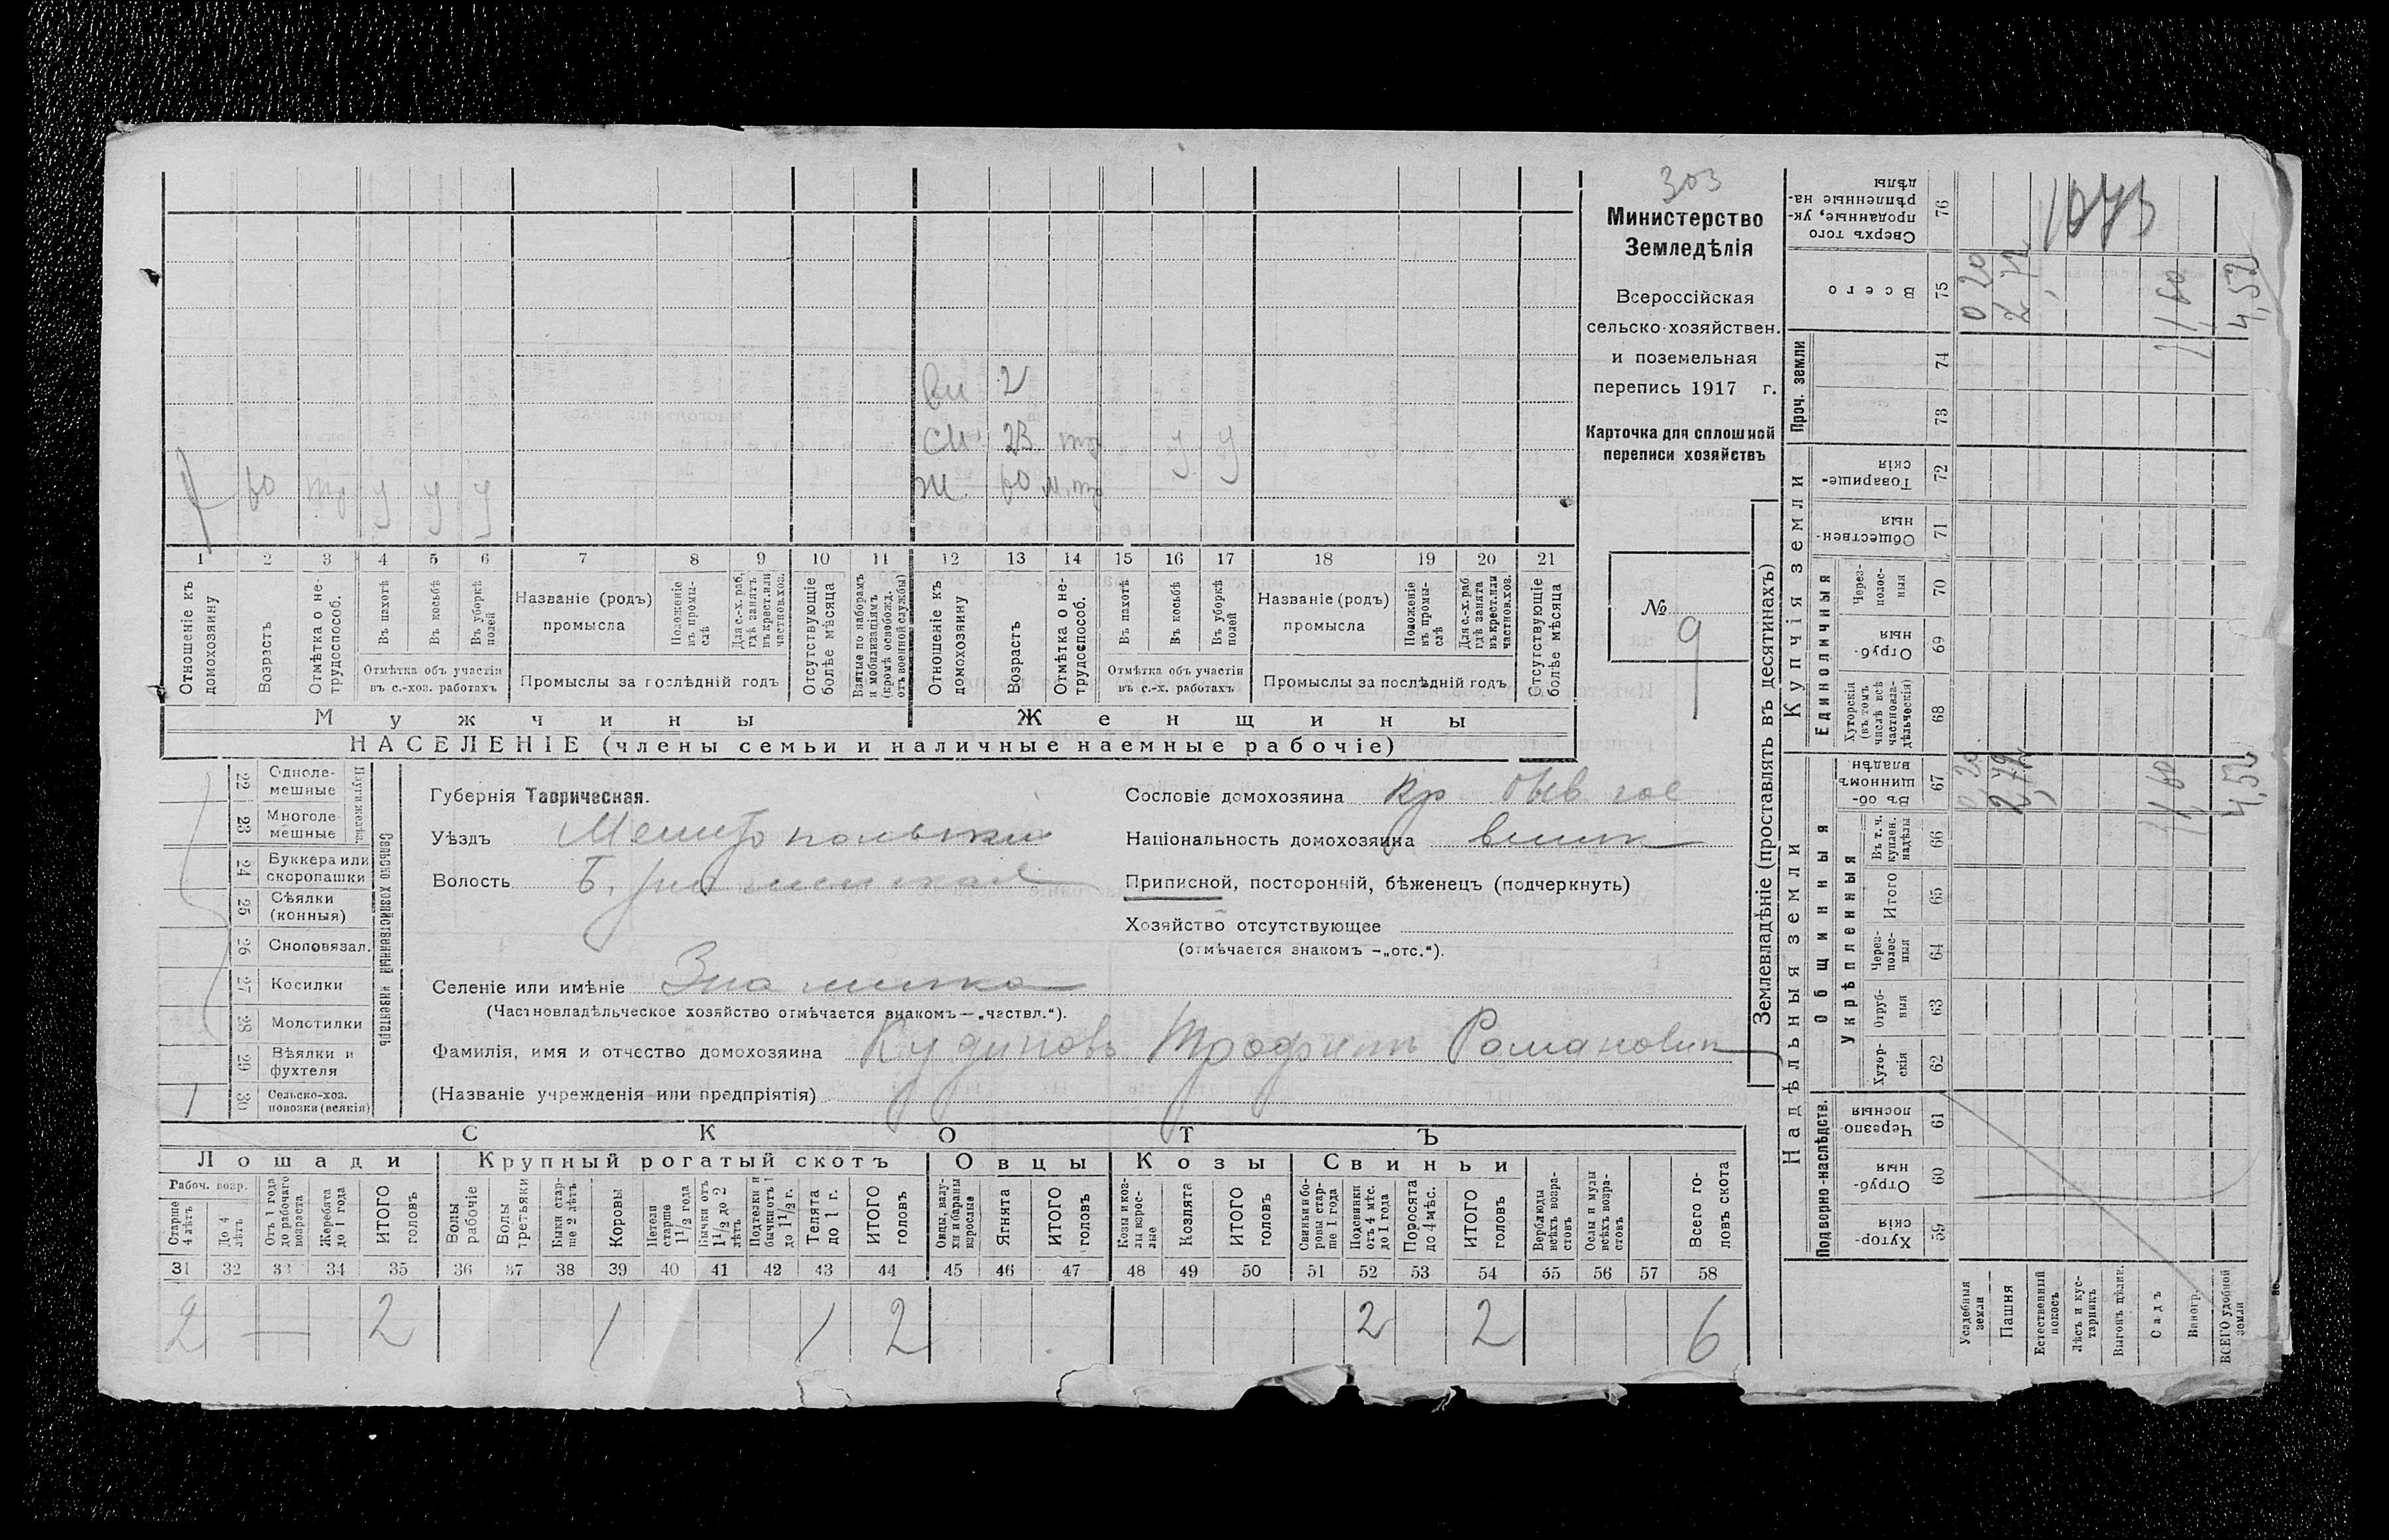 303
Министерство
Земледѣлія
Всероссійская
сельско-хозяйствен.
и поземельная
перепись 1917 г.
Карточка для сплошной
переписи хозяйствъ
№ 9
вн 2
сн. 23 тр у у
ж. 60 н. тр
1 60 тр у у у
1 2 3 4 5 6 7 8 9 10 11 12 13 14 15 16 17 18 19 20 21
Отношеніе къ домохозяину
Возрастъ
Отмѣтка о не-трудоспособ.
Въ пахотѣ
Въ косьбѣ
Въ уборкѣ полей
Отмѣтка объ участіи въ с.-хоз. работахъ
Названіе (родъ) промысла
Положеніе въ промы-слѣ
Для с.-х. раб. гдѣ занятъ въ крест. или частнов. хоз.
Промыслы за послѣдній годъ
Отсутствующіе болѣе мѣсяца
Взятые по наборамъ и мобилизаціямъ (кромѣ освобожд. отъ военной службы)
Отношеніе къ домохозяину
Возрастъ
Отмѣтка о не-трудоспособ.
Въ пахотѣ
Въ косьбѣ
Въ уборкѣ полей
Отмѣтка объ участіи въ с.-х. работахъ
Названіе (родъ) промысла
Положеніе въ промы-слѣ
Для с.-х. раб. гдѣ занята въ крест. или частнов. хоз.
Промыслы за послѣдній годъ
Отсутствующіе болѣе мѣсяца
Мужчины Женщины
НАСЕЛЕНІЕ (члены семьи и наличные наемные рабочіе)
22 Одноле-мешные
23 Многоле-мешные
24 Буккера или скоропашки
25 Сѣялки (конныя)
26 Сноповязал.
27 Косилки
28 Молотилки
29 Вѣялки и фухтеля
1 30 Сельско-хоз. повозки (всякія)
Плуги желѣз.
Сельско хозяйственный инвентарь
Губернія Таврическая.
Уѣздъ Мелитопольскій
Волость Б. Знаменская
Селеніе или имѣніе Знаменка
(Частновладѣльческое хозяйство отмѣчается знакомъ—„частвл.“).
Фамилія, имя и отчество домохозяина Кудиновъ Трофимъ Романович
(Названіе учрежденія или предпріятія)
Сословіе домохозяина кр быв гос
Національность домохозяина
Приписной, посторонній, бѣженецъ (подчеркнуть)
Хозяйство отсутствующее
(отмѣчается знакомъ —„отс.“).
СКОТЪ
Лошади Крупный рогатый скотъ Овцы Козы Свиньи
Рабоч. возр.
Старше 4 лѣтъ
До 4 лѣтъ
Отъ 1 года до рабочаго возраста
Жеребята до 1 года
ИТОГО головъ
Волы рабочіе
Волы третьяки
Быки стар-ше 2 лѣтъ
Коровы
Нетели старше 1 1/2 года
Бычки отъ 1 1/2 до 2 лѣтъ
Подтелки и бычки отъ 1 до 1 1/2 г.
Телята до 1 г.
ИТОГО головъ
Овцы, валу-хи и бараны взрослые
Ягнята
ИТОГО головъ
Козы и коз-лы взрос-лые
Козлята
ИТОГО головъ
Свиньи и бо-ровы стар-ше 1 года
Подсвинки отъ 4 мѣс. до 1 года
Поросята до 4 мѣс.
ИТОГО головъ
Верблюды всѣхъ возра-стовъ
Ослы и мулы всѣхъ возра-стовъ
Всего го-ловъ скота
31 32 33 34 35 36 37 38 39 40 41 42 43 44 45 46 47 48 49 50 51 52 53 54 55 56 57 58
2 — 2 1 1 2 2 2 6
Землевладѣніе (проставлять въ десятинахъ)
Надѣльныя земли Купчія земли Проч. земли
Подворно-наслѣдств. Общинныя Единоличныя
Укрѣпленныя
Хутор-скія 59
Отруб-ныя 60
Черезпо-лосныя 61
Хутор-скія 62
Отруб-ныя 63
Через-полос-ныя 64
Итого 65
Въ т. ч. куплен. надѣлы 66
Въ об-щинномъ владѣн. 67
Хуторскія (въ томъ числѣ всѣ частновла-дѣльческія) 68
Отруб-ныя 69
Через-полос-ныя 70
Обществен-ныя 71
Товарище-скія 72
73
74
Всего 75
Сверхъ того проданные, ук-рѣпленные на-дѣлы 76
Усадебныя земли 0,20 0 20
Пашня 2,72 2 72
Естественный покосъ
Лѣсъ и кус-тарникъ
Выгонъ цѣлин.
Садъ 1,60 1 60
Виногр.
ВСЕГО удобной земли 4,52 4,52
1073